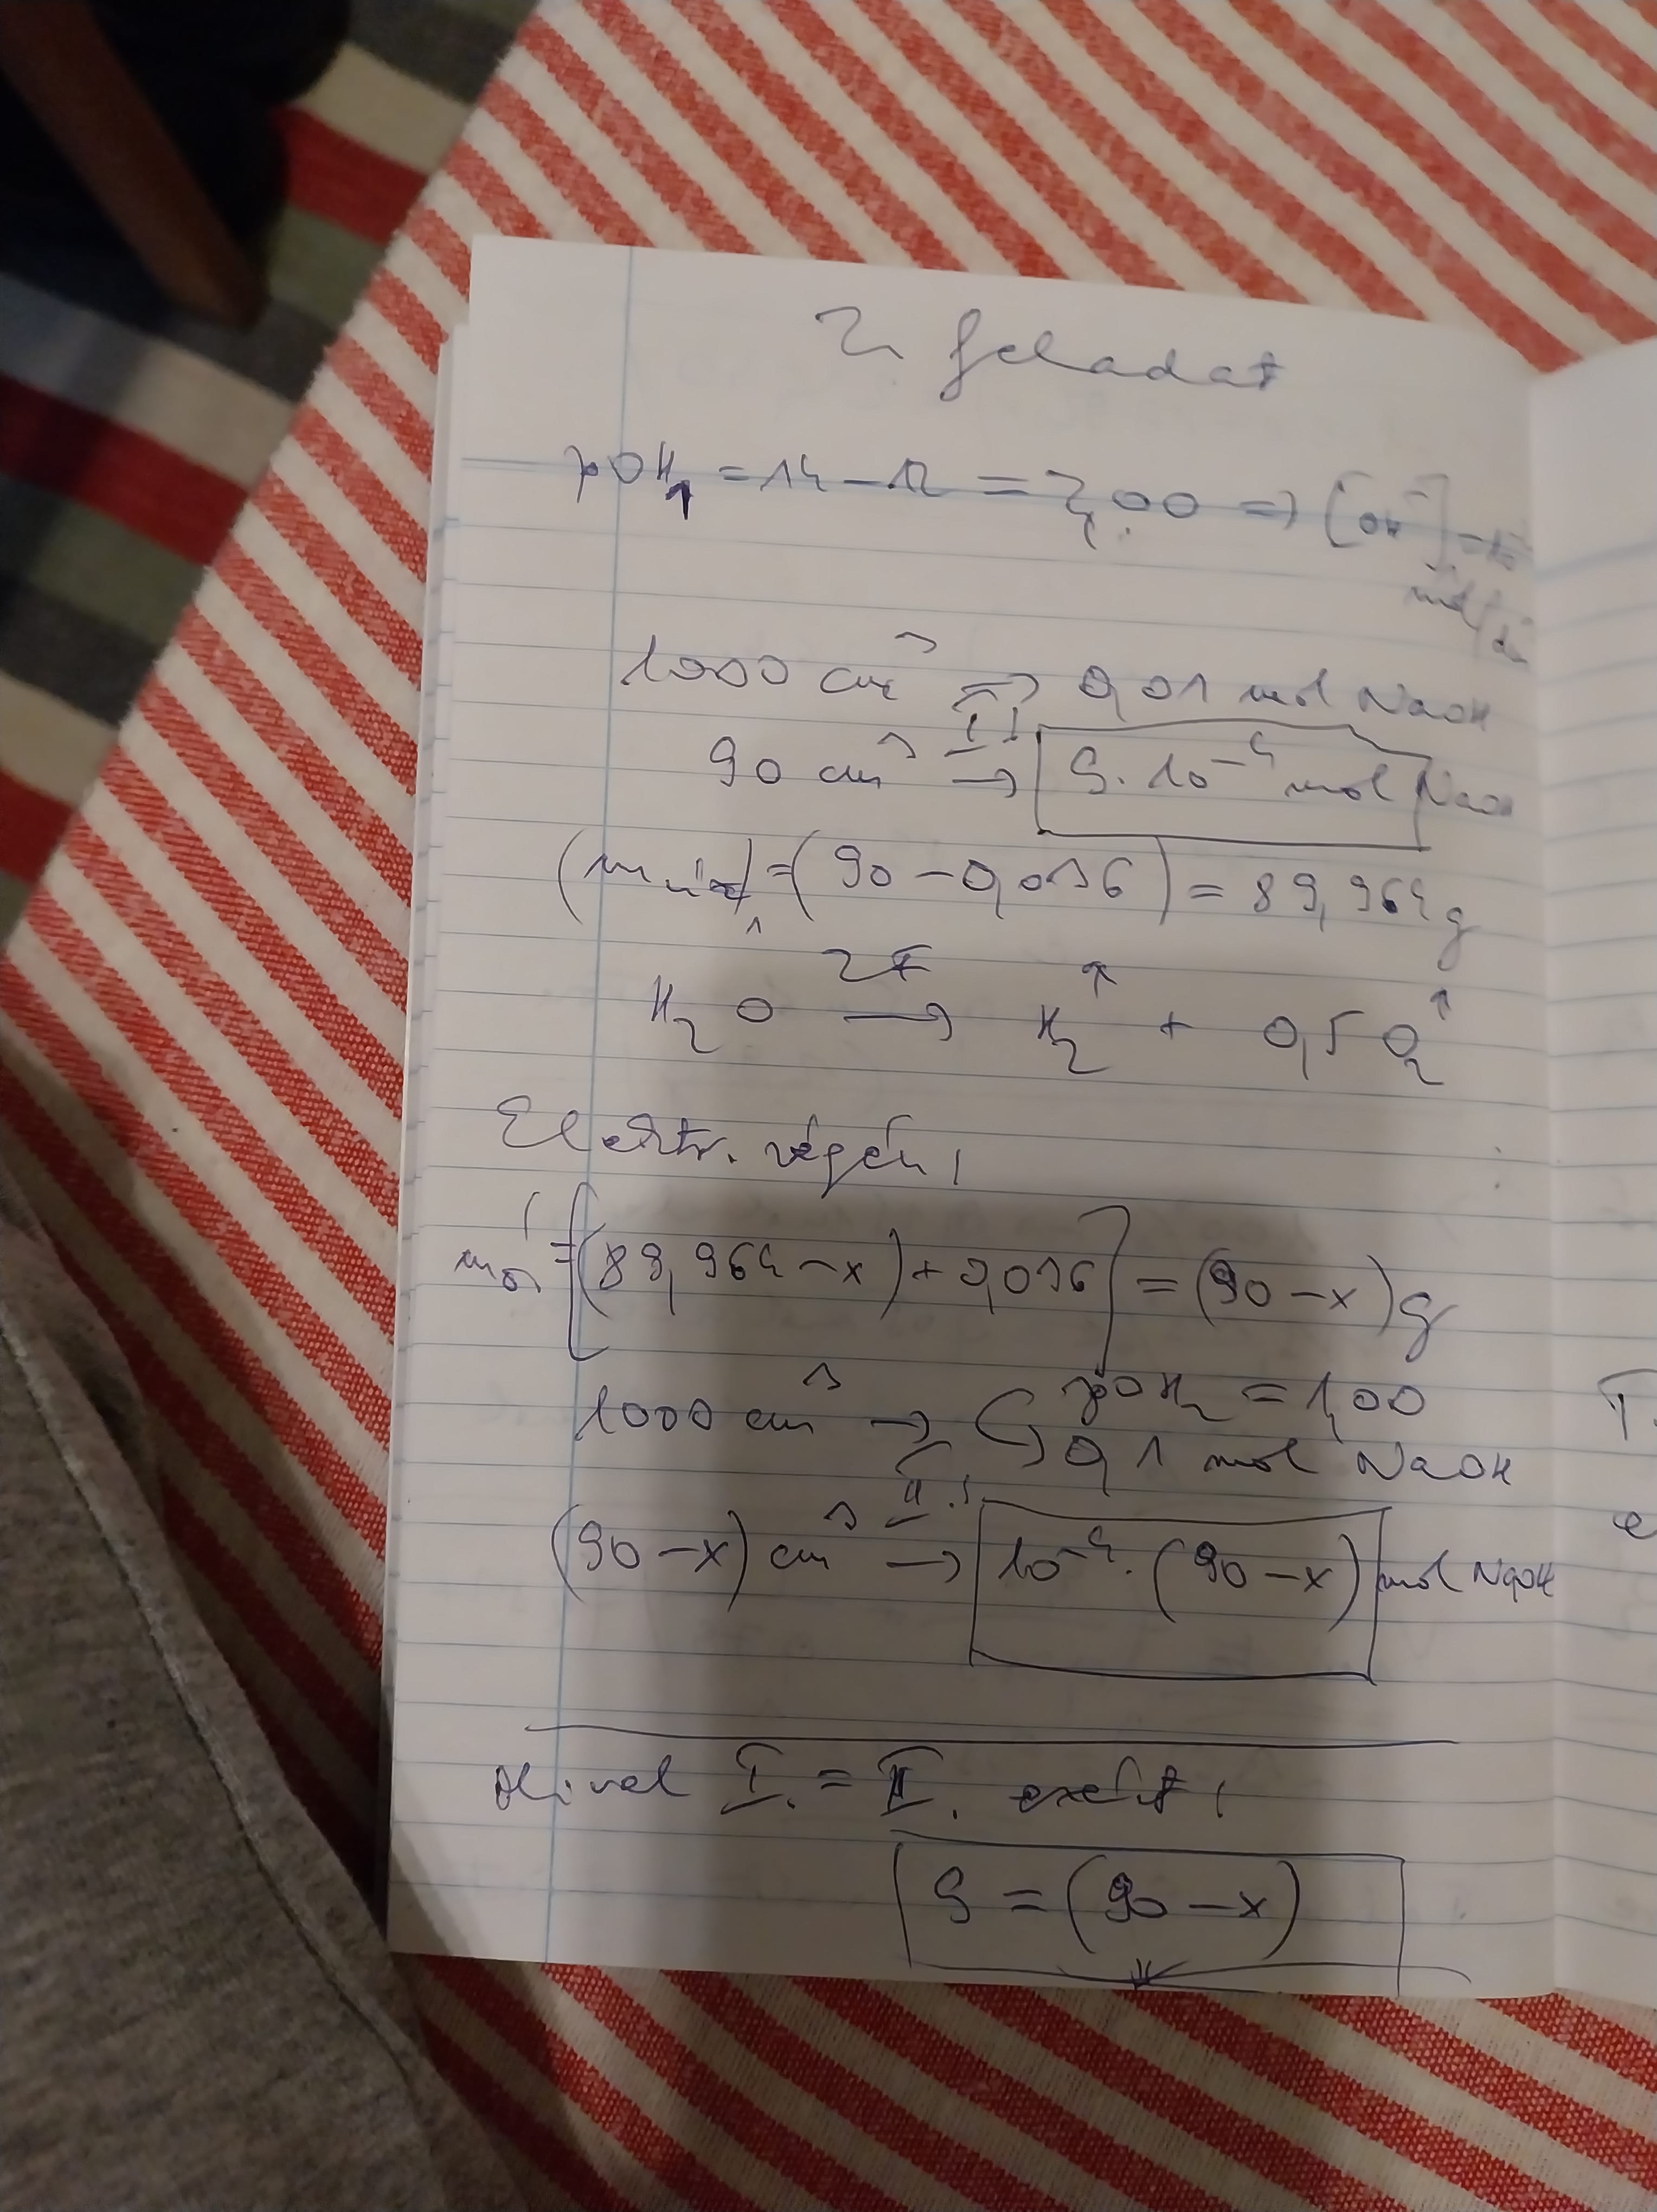 2. feladat
pOH₁ = 14 - 12 = 2,00 => [OH⁻] =
mol/
1000 cm³ => 0,01 mol NaOH
90 cm³ I. → 9·10⁻⁴ mol NaOH
= (90 - 0,036) = 89,964 g
H₂O 2F → H₂↑ + 0,5 O₂↑
Elektr. végén,
[(89,964 - x) + 0,036] = (90 - x) g
pOH₂ = 1,00
1000 cm³ → 0,1 mol NaOH
(90 - x) cm³ II. → 10⁻⁴·(90 - x) mol NaOH
Mivel I. = II. ezért,
9 = (90 - x)
T
e